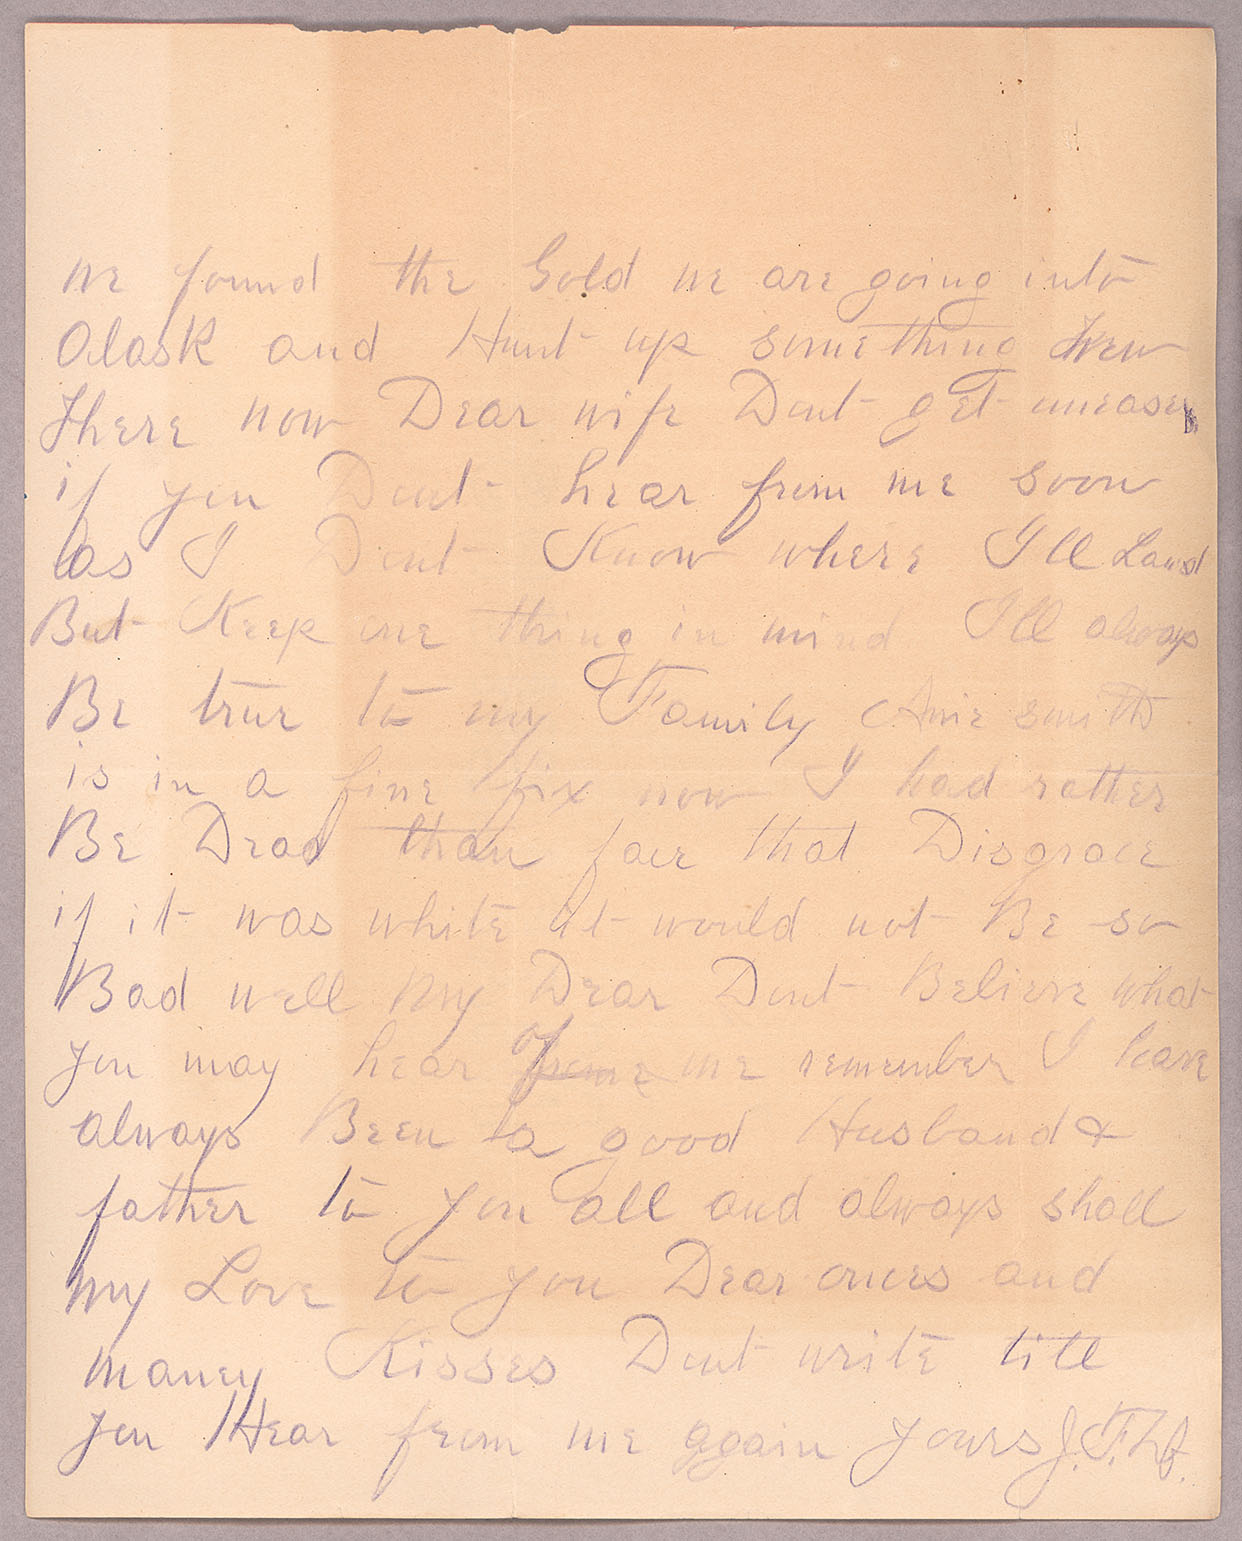 we found the Gold we are going into
Alask and Hunt up something New
There now Dear wife Dont get uneasey
if you Dont hear from me soon
as I Dont Know where I'll Land
But Keep one thing in mind I'll always
Be true to my Family Amie smith
is in a fine fix now I had rather
Be Dead than face that Disgrace
if it was white it would not Be so
Bad well my Dear Dont Believe what
you may hear of me remember I have
always Been a good Husband &
father to you all and always shall
my Love to you Dear ones and
maney Kisses Dont write till
you Hear from me again yours J.T.